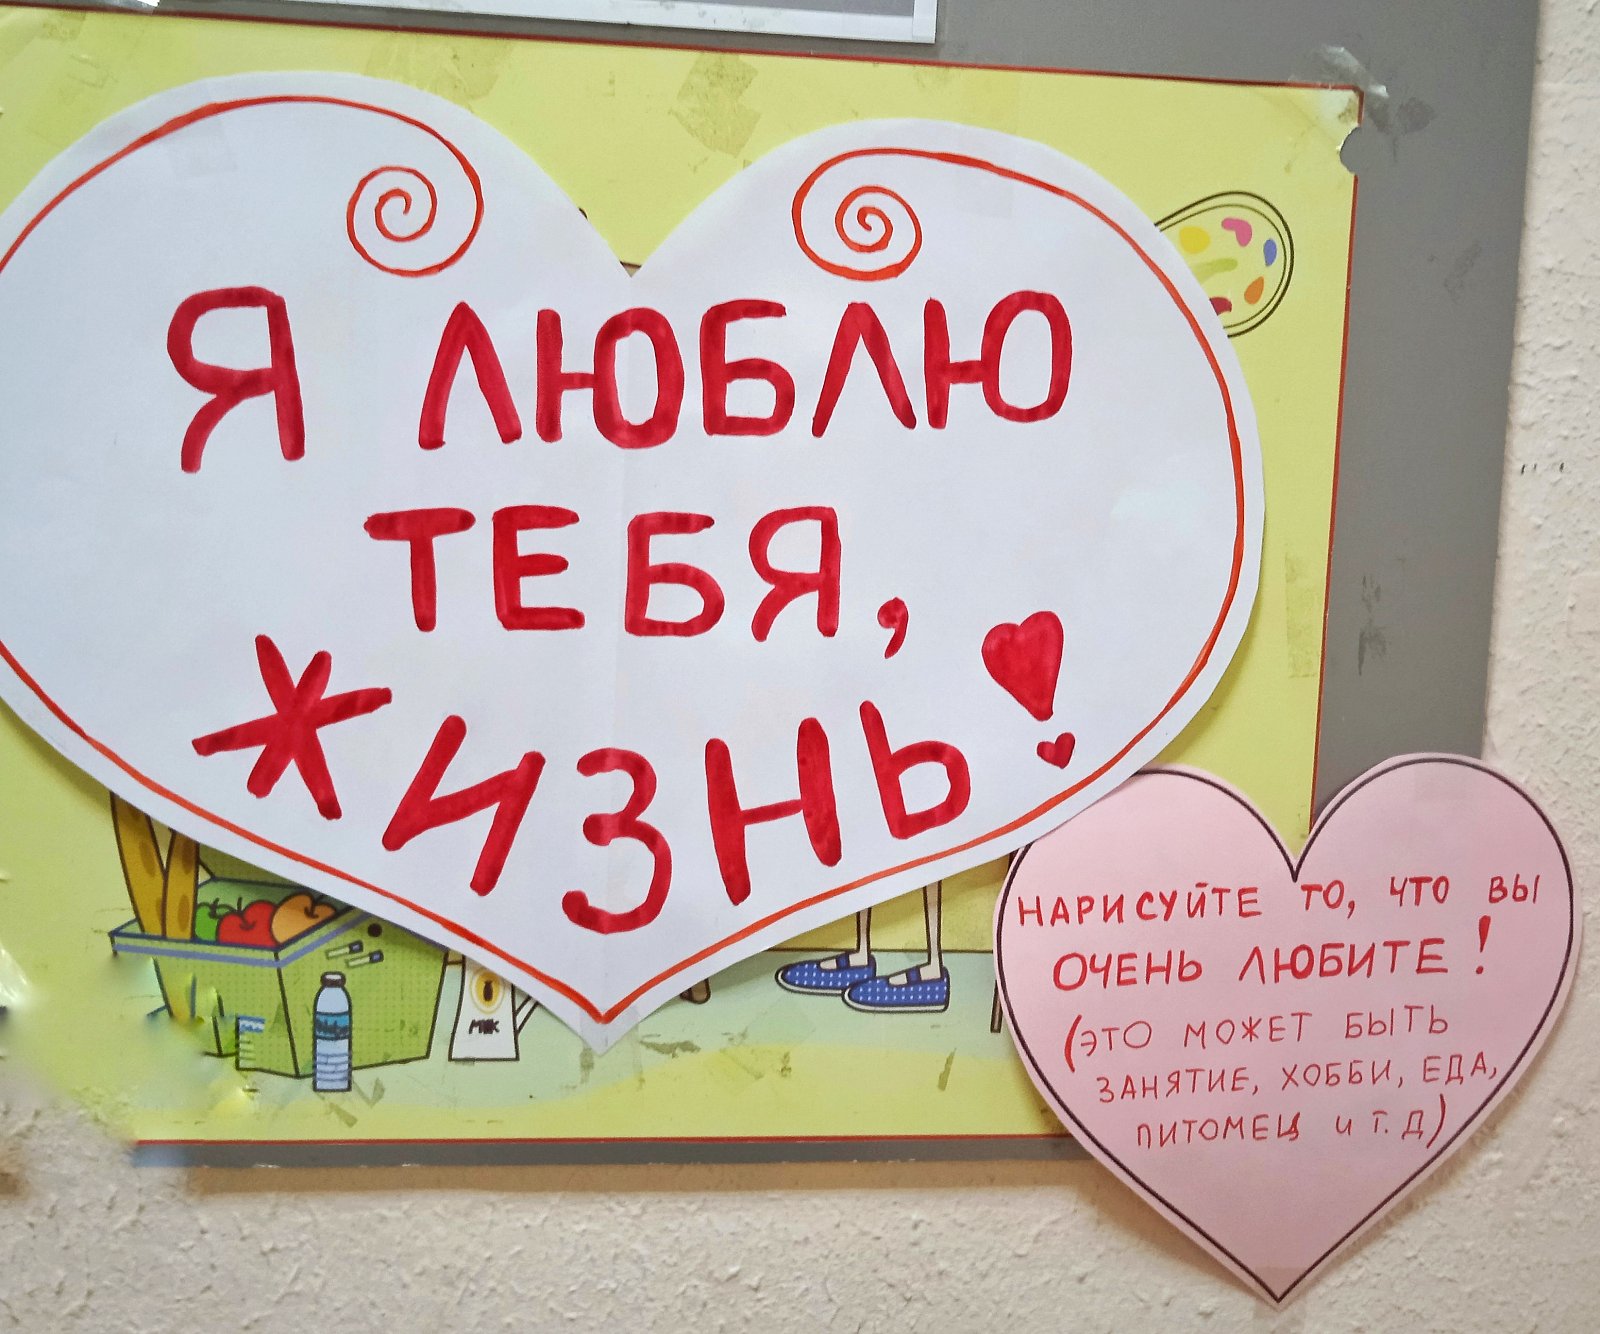 Я ЛЮБЛЮ
ТЕБЯ,
ЖИЗНЬ!
НАРИСУЙТЕ ТО, ЧТО ВЫ
ОЧЕНЬ ЛЮБИТЕ!
(ЭТО МОЖЕТ БЫТЬ
ЗАНЯТИЕ, ХОББИ, ЕДА,
ПИТОМЕЦ И Т.Д)